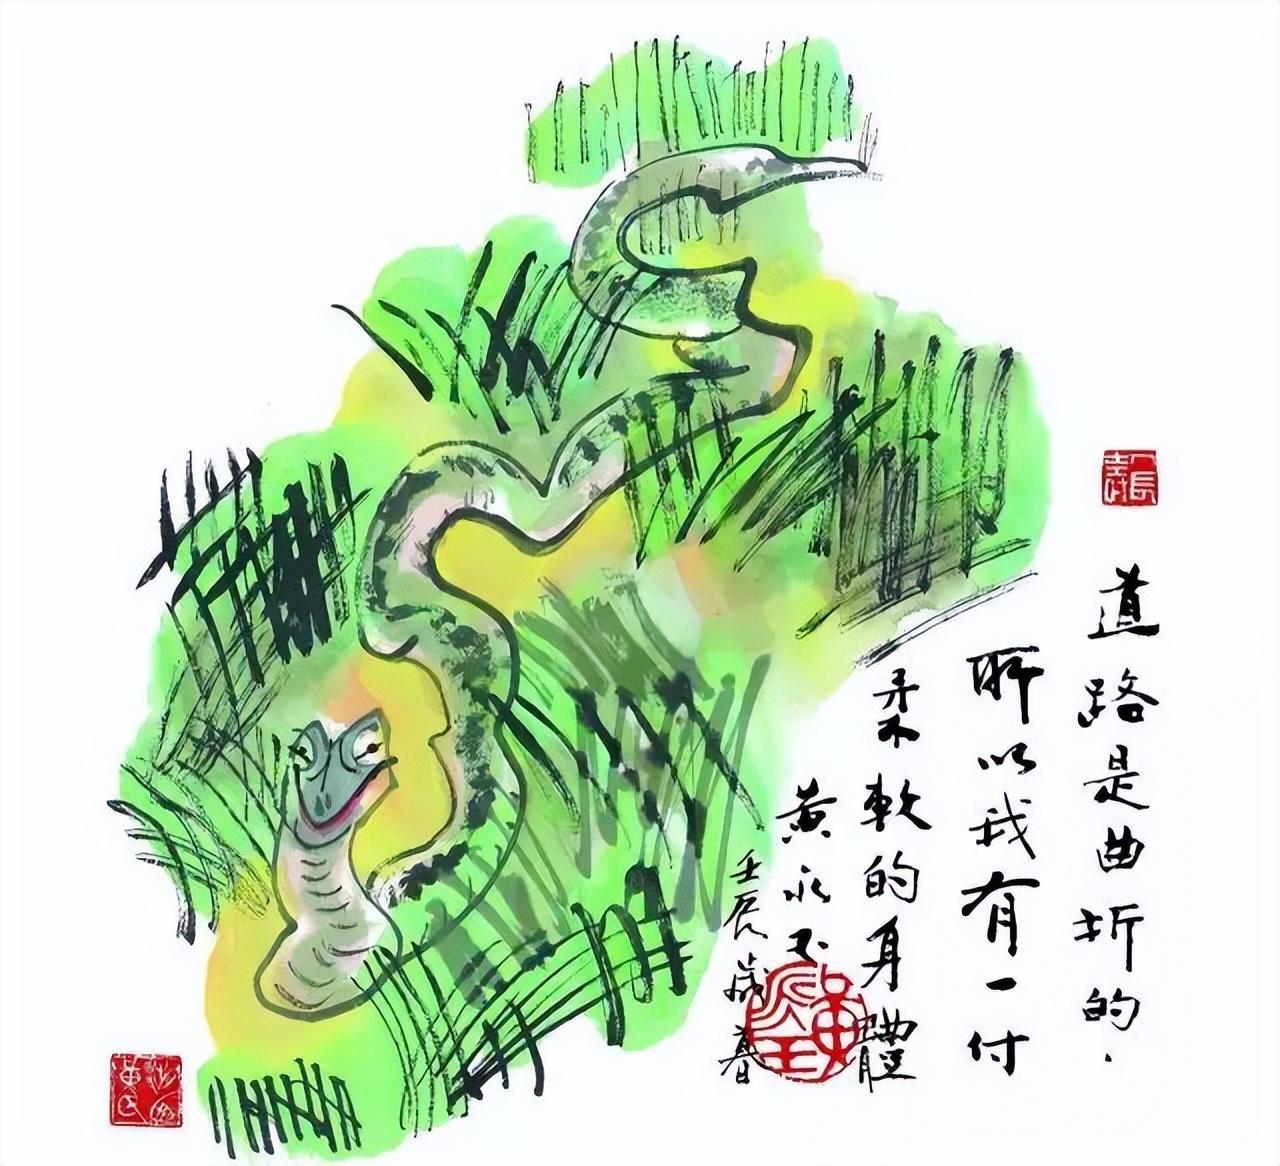 道路是曲折的.
所以我有一付
柔軟的身體
黄永玉
壬辰歲暮
黄永玉